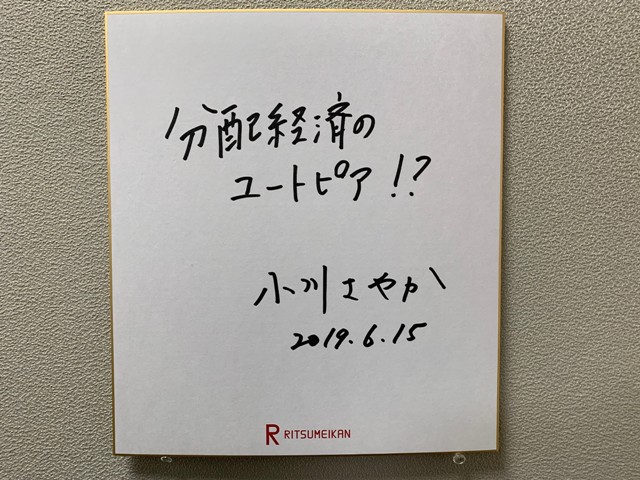 分配経済の
ユートピア!?
小川さやか
2019.6.15
R RITSUMEIKAN